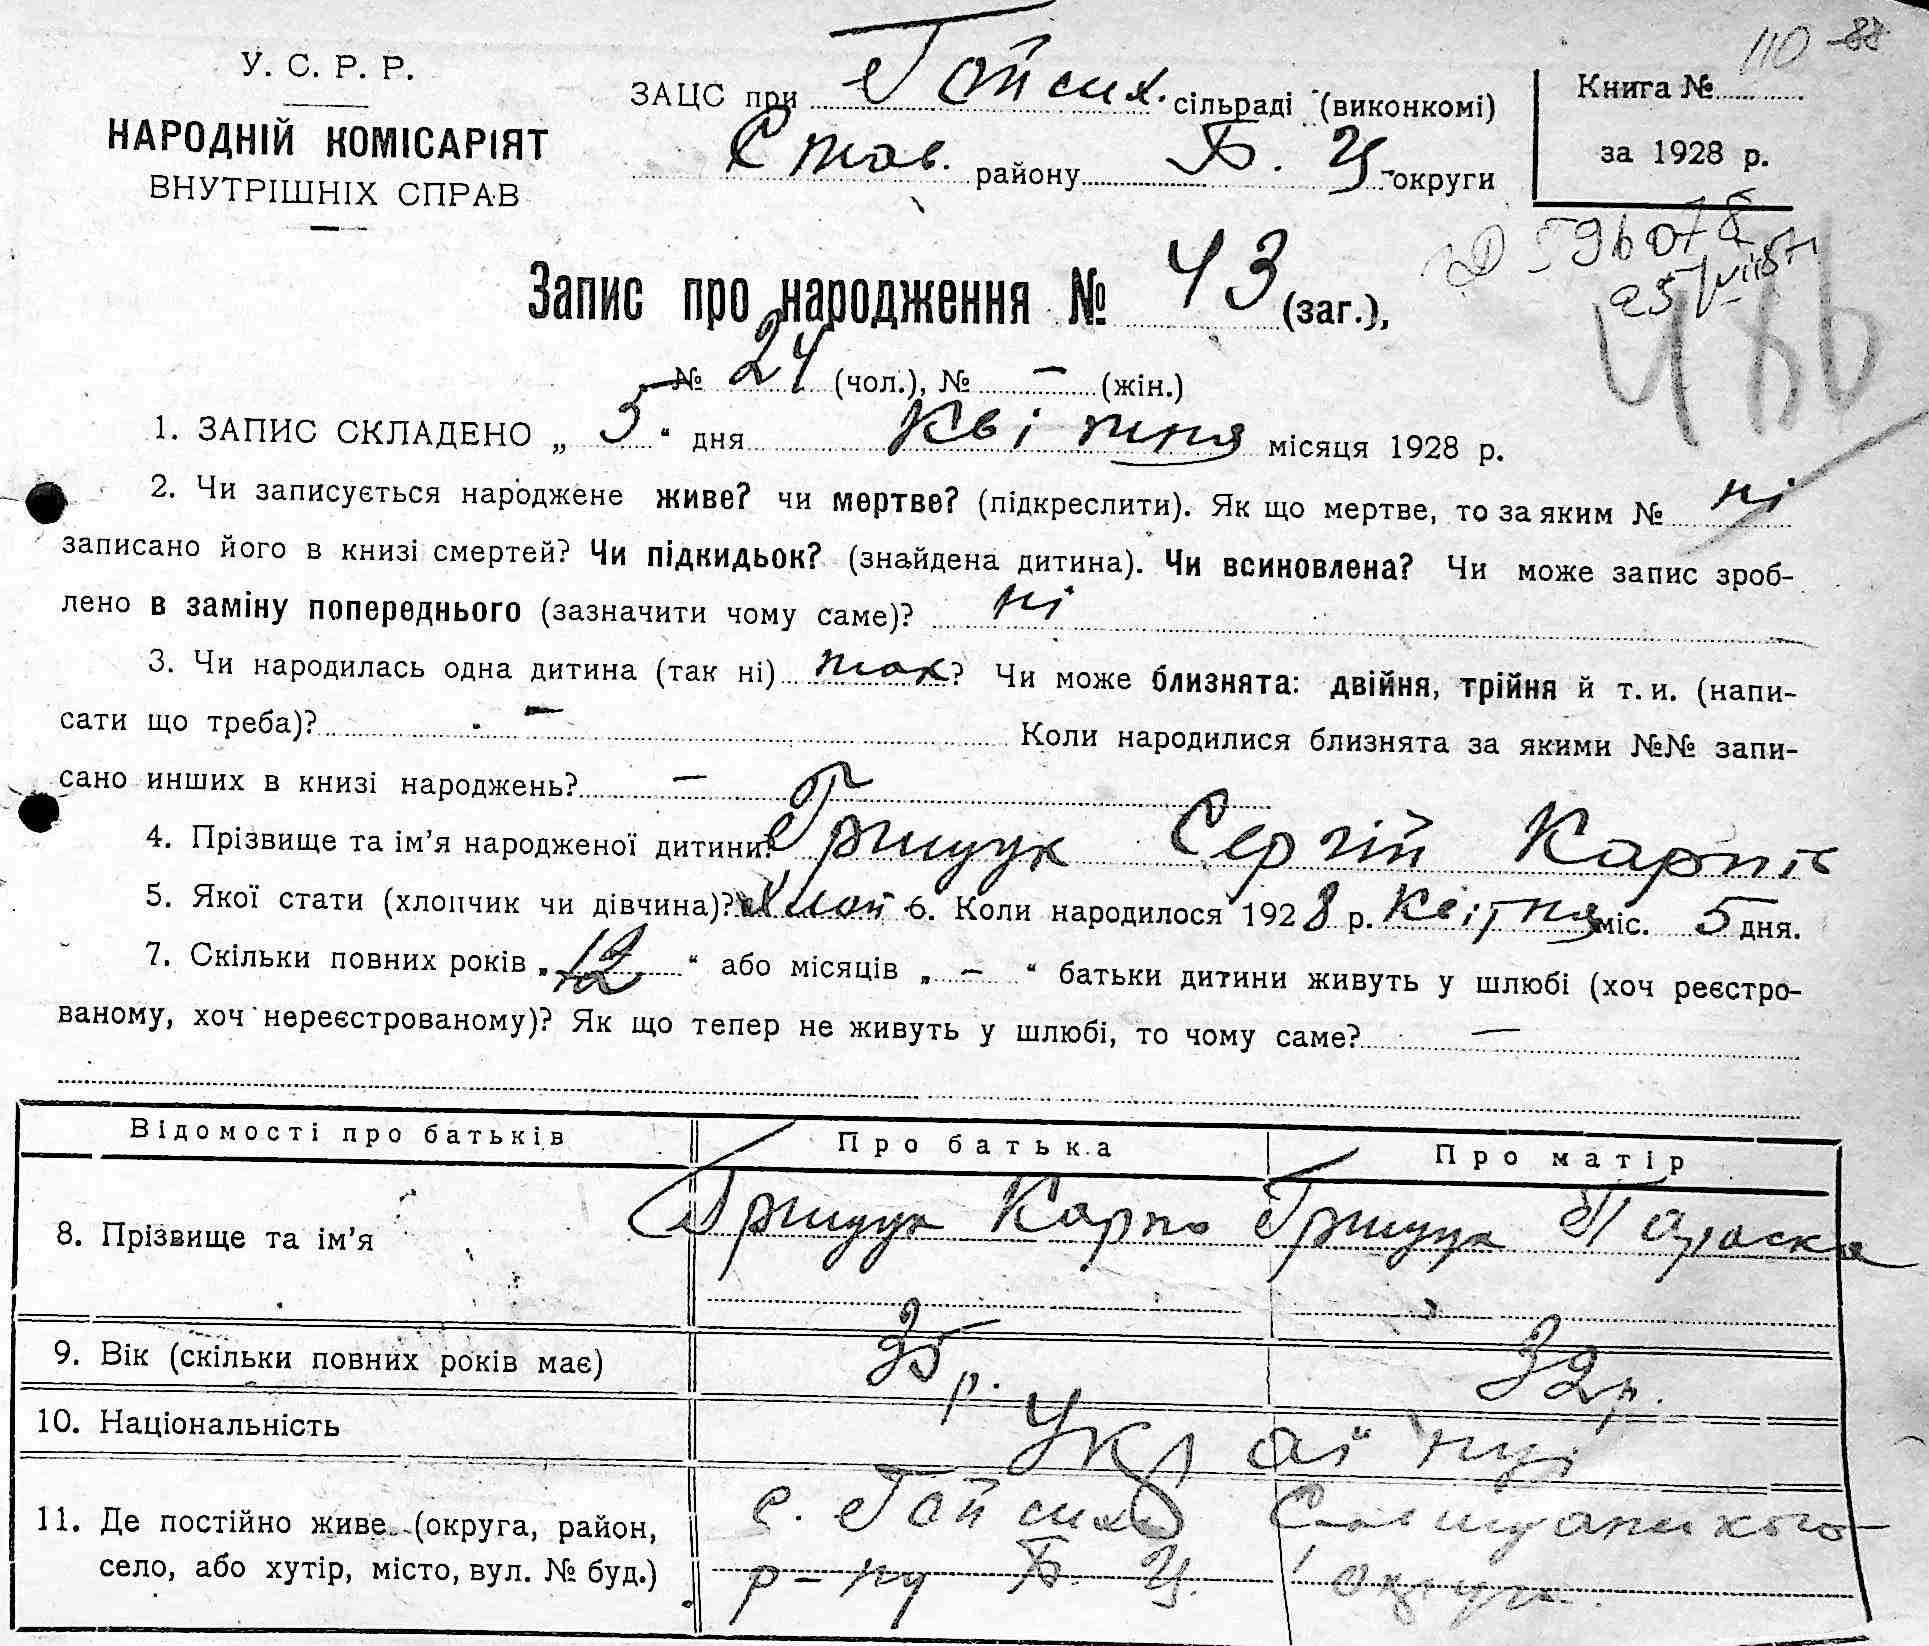 110 88
У. С. Р. Р.
НАРОДНІЙ КОМІСАРІЯТ
ВНУТРІШНІХ СПРАВ
ЗАЦС при Гойсих. сільраді (виконкомі)
Став. району Б. Ц. округи
Книга №
за 1928 р.
596078
25/VIII 57
486
Запис про народження № 43 (заг.),
№ 24 (чол.), № — (жін.)
1. ЗАПИС СКЛАДЕНО „ 5 “ дня Квітня місяця 1928 р.
2. Чи записується народжене живе? чи мертве? (підкреслити). Як що мертве, то за яким № ні
записано його в книзі смертей? Чи підкидьок? (знайдена дитина). Чи всиновлена? Чи може запис зроб-
лено в заміну попереднього (зазначити чому саме)? ні
3. Чи народилась одна дитина (так ні) так? Чи може близнята: двійня, трійня й т. и. (напи-
сати що треба)? — Коли народилися близнята за якими №№ запи-
сано инших в книзі народжень? —
4. Прізвище та ім’я народженої дитини? Грищук Сергій Карпів
5. Якої стати (хлопчик чи дівчина)? Хлоп 6. Коли народилося 1928 р. Квітня міс. 5 дня.
7. Скільки повних років „ 12 “ або місяців „ — “ батьки дитини живуть у шлюбі (хоч реєстро-
ваному, хоч нереєстрованому)? Як що тепер не живуть у шлюбі, то чому саме? —
Відомості про батьків Про батька Про матір
8. Прізвище та ім’я Грищук Карпо Грищук Параска
9. Вік (скільки повних років має) 35 р. 32 р.
10. Національність Українці
11. Де постійно живе (округа, район, с. Гойсиха Ставищанського
село, або хутір, місто, вул. № буд.) р-ну Б. Ц. округи.